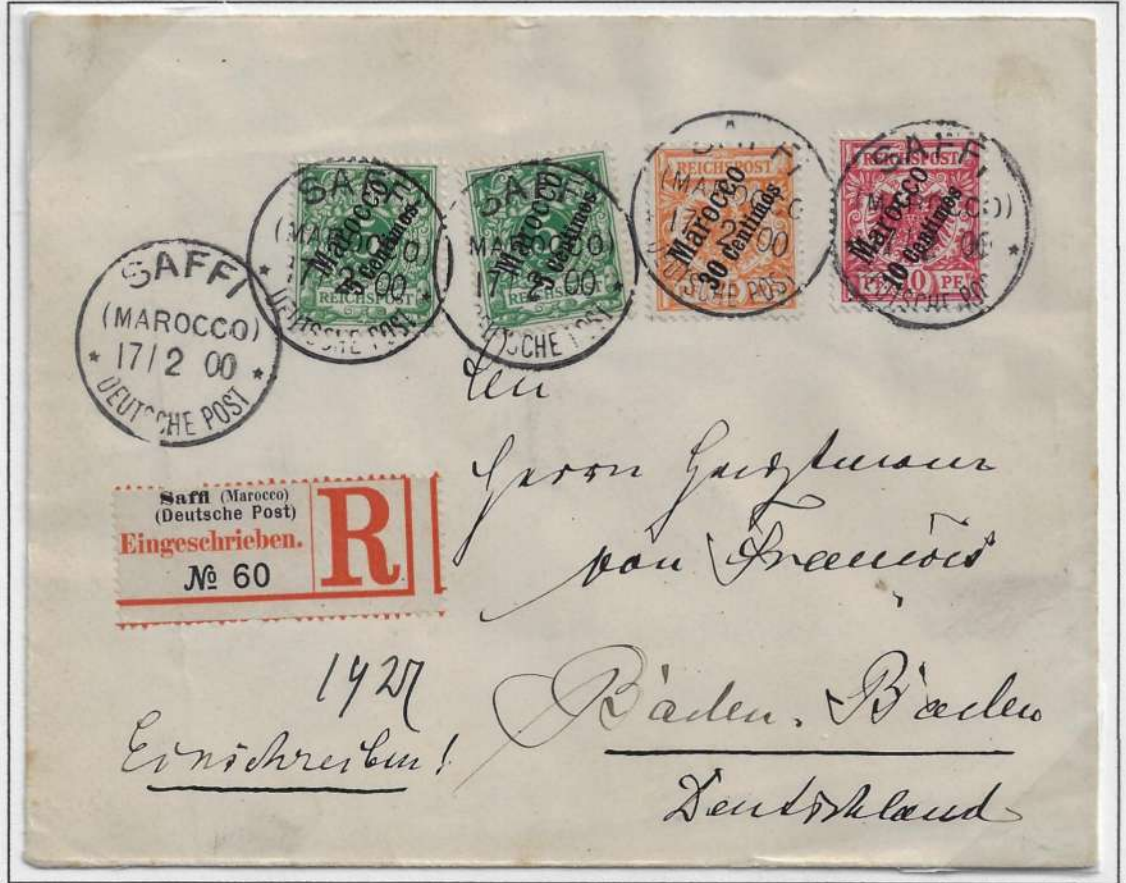 SAFFI
(MAROCCO)
17/2 00
DEUTSCHE POST
SAFFI
(MAROCCO)
17/2 00
DEUTSCHE POST
Marocco
5 Centimos
5
REICHSPOST
SAFFI
(MAROCCO)
17/2 00
DEUTSCHE POST
Marocco
5 Centimos
REICHSPOST
SAFFI
(MAROCCO)
17/2 00
DEUTSCHE POST
REICHSPOST
Marocco
30 Centimos
SAFFI
(MAROCCO)
00
DEUTSCHE POST
REICHSPOST
Marocco
10 Centimos
PF 10 PF
Saffi (Marocco)
(Deutsche Post)
Eingeschrieben.
R
№ 60
Herrn Hauptmann
von François
Baden-Baden
Deutschland
Einschreiben!